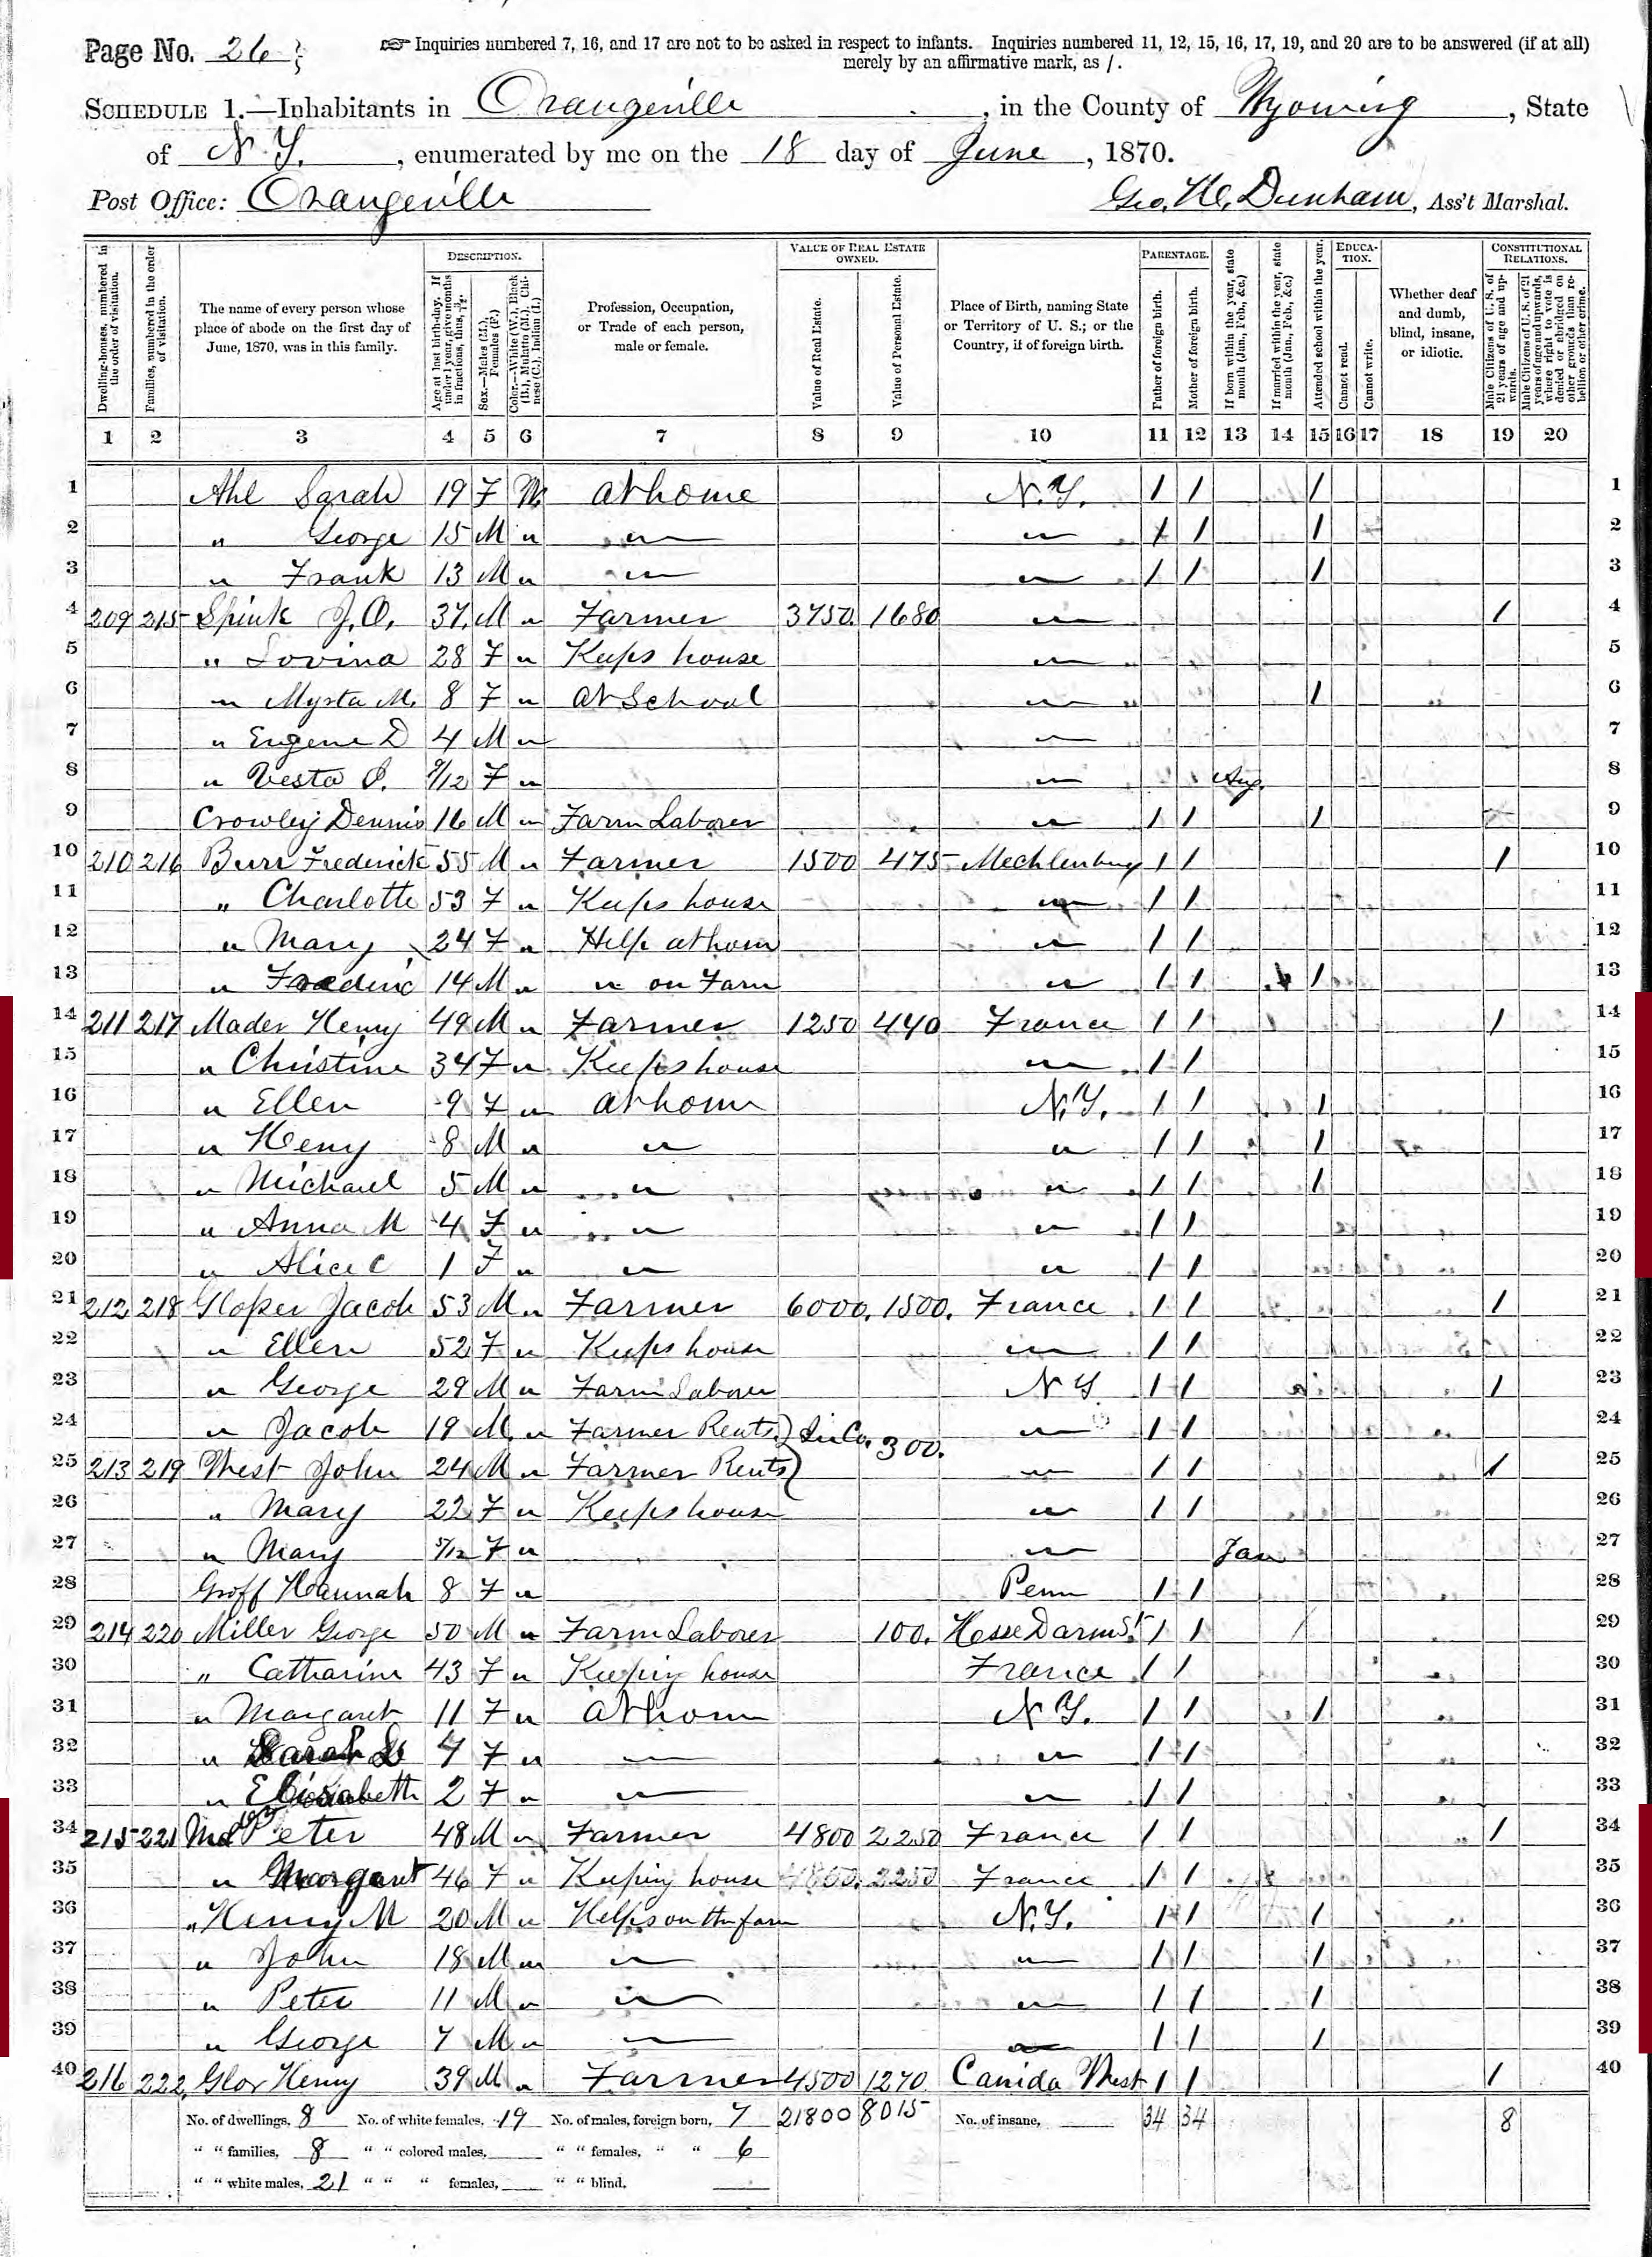 Page No. 26
☞ Inquiries numbered 7, 16, and 17 are not to be asked in respect to infants. Inquiries numbered 11, 12, 15, 16, 17, 19, and 20 are to be answered (if at all)
merely by an affirmative mark, as /.
SCHEDULE 1.—Inhabitants in Orangeville, in the County of Wyoming, State
of N.Y., enumerated by me on the 18 day of June, 1870.
Post Office: Orangeville Geo. H. Dunham, Ass't Marshal.
Dwelling-houses, numbered in the order of visitation.
Families, numbered in the order of visitation.
The name of every person whose place of abode on the first day of June, 1870, was in this family.
DESCRIPTION.
Age at last birth-day. If under 1 year, give months in fractions, thus, 3/12.
Sex.—Males (M.), Females (F.)
Color.—White (W.), Black (B.), Mulatto (M.), Chinese (C.), Indian (I.)
Profession, Occupation, or Trade of each person, male or female.
VALUE OF REAL ESTATE OWNED.
Value of Real Estate.
Value of Personal Estate.
Place of Birth, naming State or Territory of U. S.; or the Country, if of foreign birth.
PARENTAGE.
Father of foreign birth.
Mother of foreign birth.
If born within the year, state month (Jan., Feb., &c.)
If married within the year, state month (Jan., Feb., &c.)
Attended school within the year.
EDUCATION.
Cannot read.
Cannot write.
Whether deaf and dumb, blind, insane, or idiotic.
CONSTITUTIONAL RELATIONS.
Male Citizens of U. S. of 21 years of age and upwards.
Male Citizens of U. S. of 21 years of age and upwards, where right to vote is denied or abridged on other grounds than rebellion or other crime.
1 2 3 4 5 6 7 8 9 10 11 12 13 14 15 16 17 18 19 20
1 Ahl Sarah 19 F W At home N.Y. / / / 1
2 " George 15 M " " " / / / 2
3 " Frank 13 M " " " / / / 3
4 209 215 Spink J.O. 37 M " Farmer 3750 1680 " / 4
5 " Lovina 28 F " Keeps house " 5
6 " Myrta M. 8 F " At School " / 6
7 " Eugene D 4 M " " 7
8 " Vesta 9/12 F " " Aug. 8
9 Crowley Dennis 16 M " Farm Laborer " / / / 9
10 210 216 Burr Frederick 55 M " Farmer 1500 475 Mechlenburg / / / 10
11 " Charlotte 53 F " Keeps house " / / 11
12 " Mary 24 F " Help at home " / / 12
13 " Frederic 14 M " " on Farm " / / / 13
14 211 217 Mader Henry 49 M " Farmer 1250 440 France / / / 14
15 " Christine 34 F " Keeps house " / / 15
16 " Ellen 9 F " At home N.Y. / / / 16
17 " Henry 8 M " " " / / / 17
18 " Michael 5 M " " " / / / 18
19 " Anna M 4 F " " " / / 19
20 " Alice C 1 F " " " / / 20
21 212 218 Jacob 53 M " Farmer 6000. 1500. France / / / 21
22 " Ellen 52 F " Keeps house " / / 22
23 " George 29 M " Farm Laborer N Y / / / 23
24 " Jacob 19 M. " Farmer Rents) In Co. 300. " / / 24
25 213 219 West John 24 M " Farmer Rents) " / / / 25
26 " Mary 22 F " Keeps house " / / 26
27 " Mary 5/12 F " " Jan 27
28 Groff Hannah 8 F " Penn / / 28
29 214 220 Miller George 50 M " Farm Laborer 100. Hesse Darmst. / / / 29
30 " Catharine 43 F " Keeping house France / / 30
31 " Margaret 11 F " At home N Y. / / / 31
32 " Sarah 4 F " " " / / 32
33 " Elizabeth 2 F " " " / / 33
34 215 221 Peter 48 M " Farmer 4800 2250 France / / / 34
35 " Margaret 46 F " Keeping house 4800. 2250 France / / 35
36 " Henry M 20 M " Helps on the farm N.Y. / / / 36
37 " John 18 M " " " / / / 37
38 " Peter 11 M " " " / / / 38
39 " George 7 M " " " / / / 39
40 216 222 Glor Henry 39 M " Farmer 4500 1270 Canida West / / / 40
No. of dwellings, 8 No. of white females, 19 No. of males, foreign born, 7 21800 8015 No. of insane, 34 34 8
" " families, 8 " " colored males, " " females, " " 6
" " white males, 21 " " " females, " " blind,